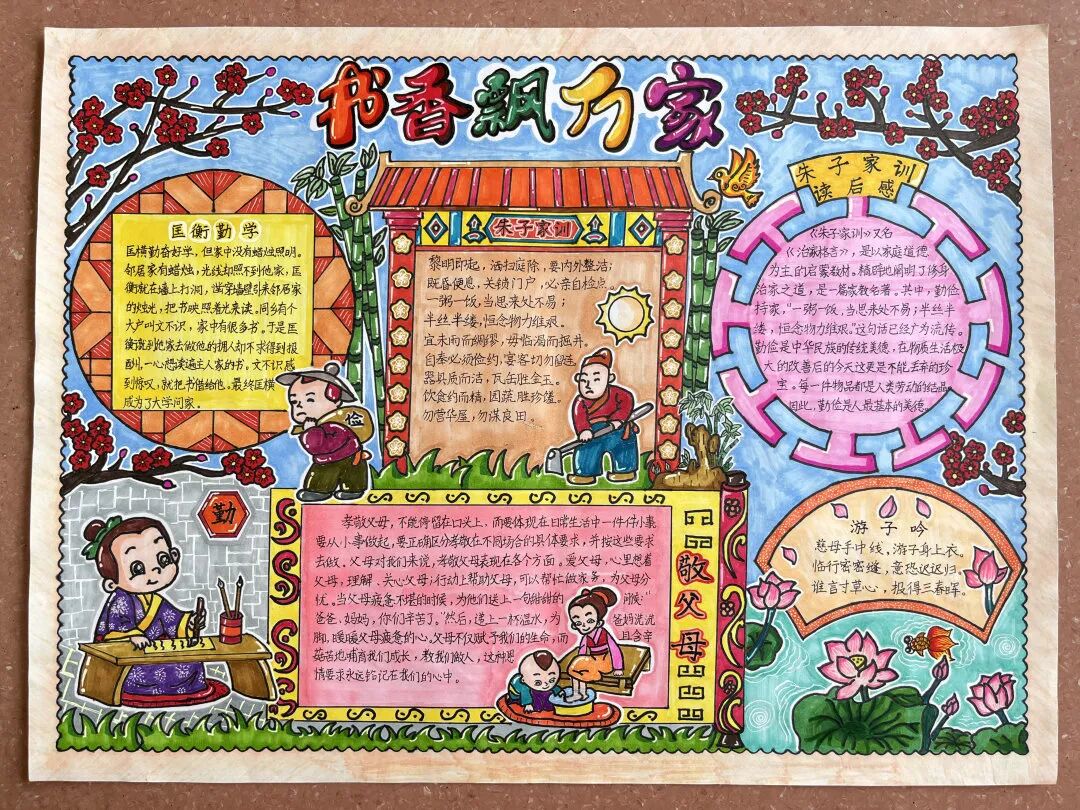 书香飘万家
匡衡勤学
匡横勤奋好学，但家中没有蜡烛照明。
邻居家有蜡烛，光线却照不到他家，匡
衡就在墙上打洞，凿穿墙壁引来邻居家
的烛光，把书映照着光来读。同乡有个
大户叫文不识，家中有很多书。于是匡
衡说到他家去做他的拥人却不求得到报
酬，一心想读遍主人家的书。文不识感
到惊叹，就把书借给他。最终匡横
成为了大学问家。
朱子家训
黎明即起，洒扫庭除，要内外整洁；
既昏便息，关锁门户，必亲自检点。
一粥一饭，当思来处不易；
半丝半缕，恒念物力维艰。
宜未雨而绸缪，毋临渴而掘井。
自奉必须俭约，宴客切勿留连。
器具质而洁，瓦缶胜金玉。
饮食约而精，园蔬胜珍馐。
勿营华屋，勿谋良田。
朱子家训
读后感
《朱子家训》又名
《治家格言》，是以家庭道德
为主的启蒙教材。精辟地阐明了修身
治家之道，是一篇家教名著。其中，勤俭
持家，“一粥一饭，当思来处不易；半丝半
缕，恒念物力维艰。”这句话已经广为流传。
勤俭是中华民族的传统美德，在物质生活极
大的改善后的今天这更是不能丢弃的珍
宝。每一件物品都是人类劳动的结晶
因此，勤俭是人最基本的美德。
俭
勤
孝敬父母，不能停留在口头上，而要体现在日常生活中一件件小事
要从小事做起，要正确区分孝敬在不同场合的具体要求，并按这些要求
去做。父母对我们来说，孝敬父母表现在各个方面。爱父母，心里想着
父母，理解、关心父母；行动上帮助父母，可以帮忙做家务，为父母分
忧。当父母疲惫不堪的时候，为他们送上一句甜甜的问候：“
爸爸、妈妈，你们辛苦了。”然后，送上一杯温水，为爸妈洗洗
脚，暖暖父母疲惫的心。父母不仅赋予我们的生命，而且含辛
茹苦地哺育我们成长，教我们做人，这种恩
情要求永远铭记在我们的心中。
敬父母
游子吟
慈母手中线，游子身上衣。
临行密密缝，意恐迟迟归。
谁言寸草心，报得三春晖。